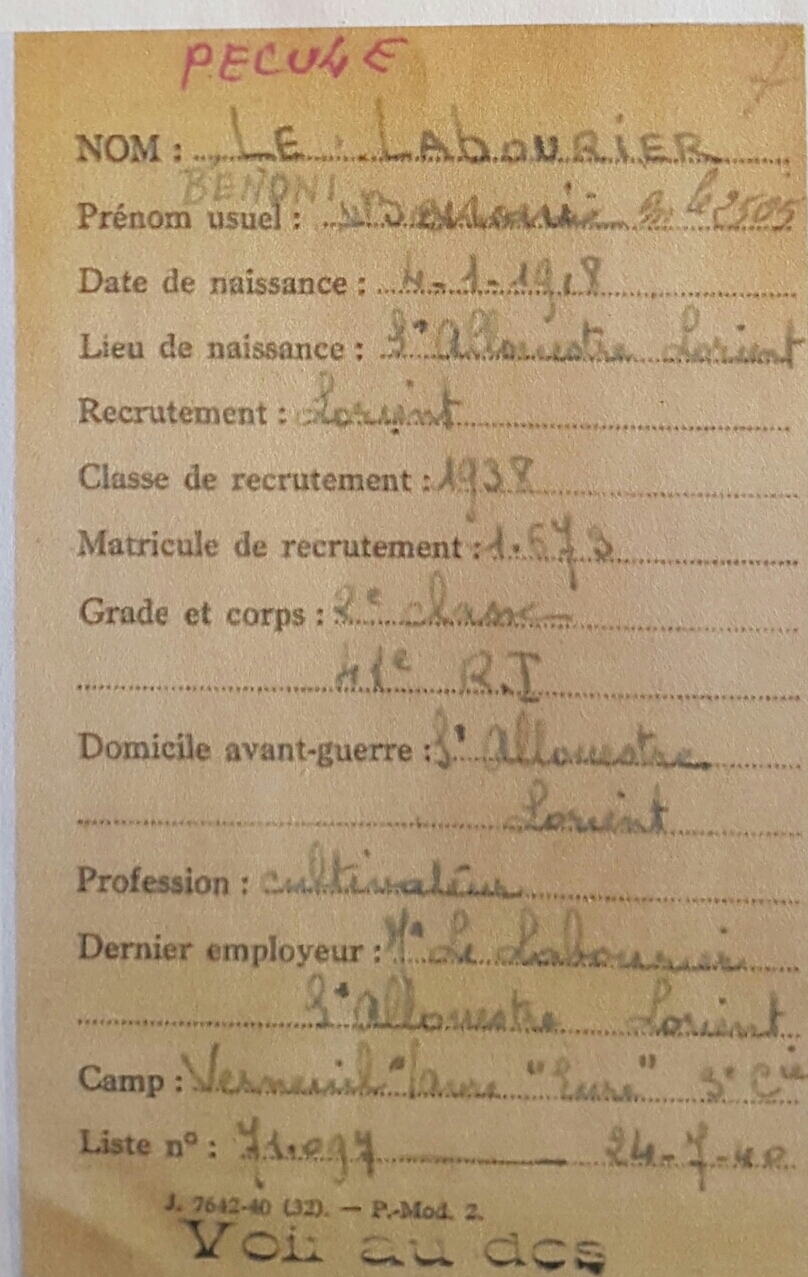 PECULE
NOM : LE LAbOURiER
BENONI
Prénom usuel :
Date de naissance : 4-1-1918
Lieu de naissance : St Allouestre Lorient
Recrutement : Lorient
Classe de recrutement : 1938
Matricule de recrutement : 1.673
Grade et corps : 2e classe
41e R.I
Domicile avant-guerre : St Allouestre
Lorient
Profession : cultivateur
Dernier employeur : Le Labourier
St Allouestre Lorient
Camp : Verneuil "Eure" 3e Cie
Liste n° : 71.097 24-7-40
J. 7642-40 (32). — P.-Mod. 2.
Voir au dos